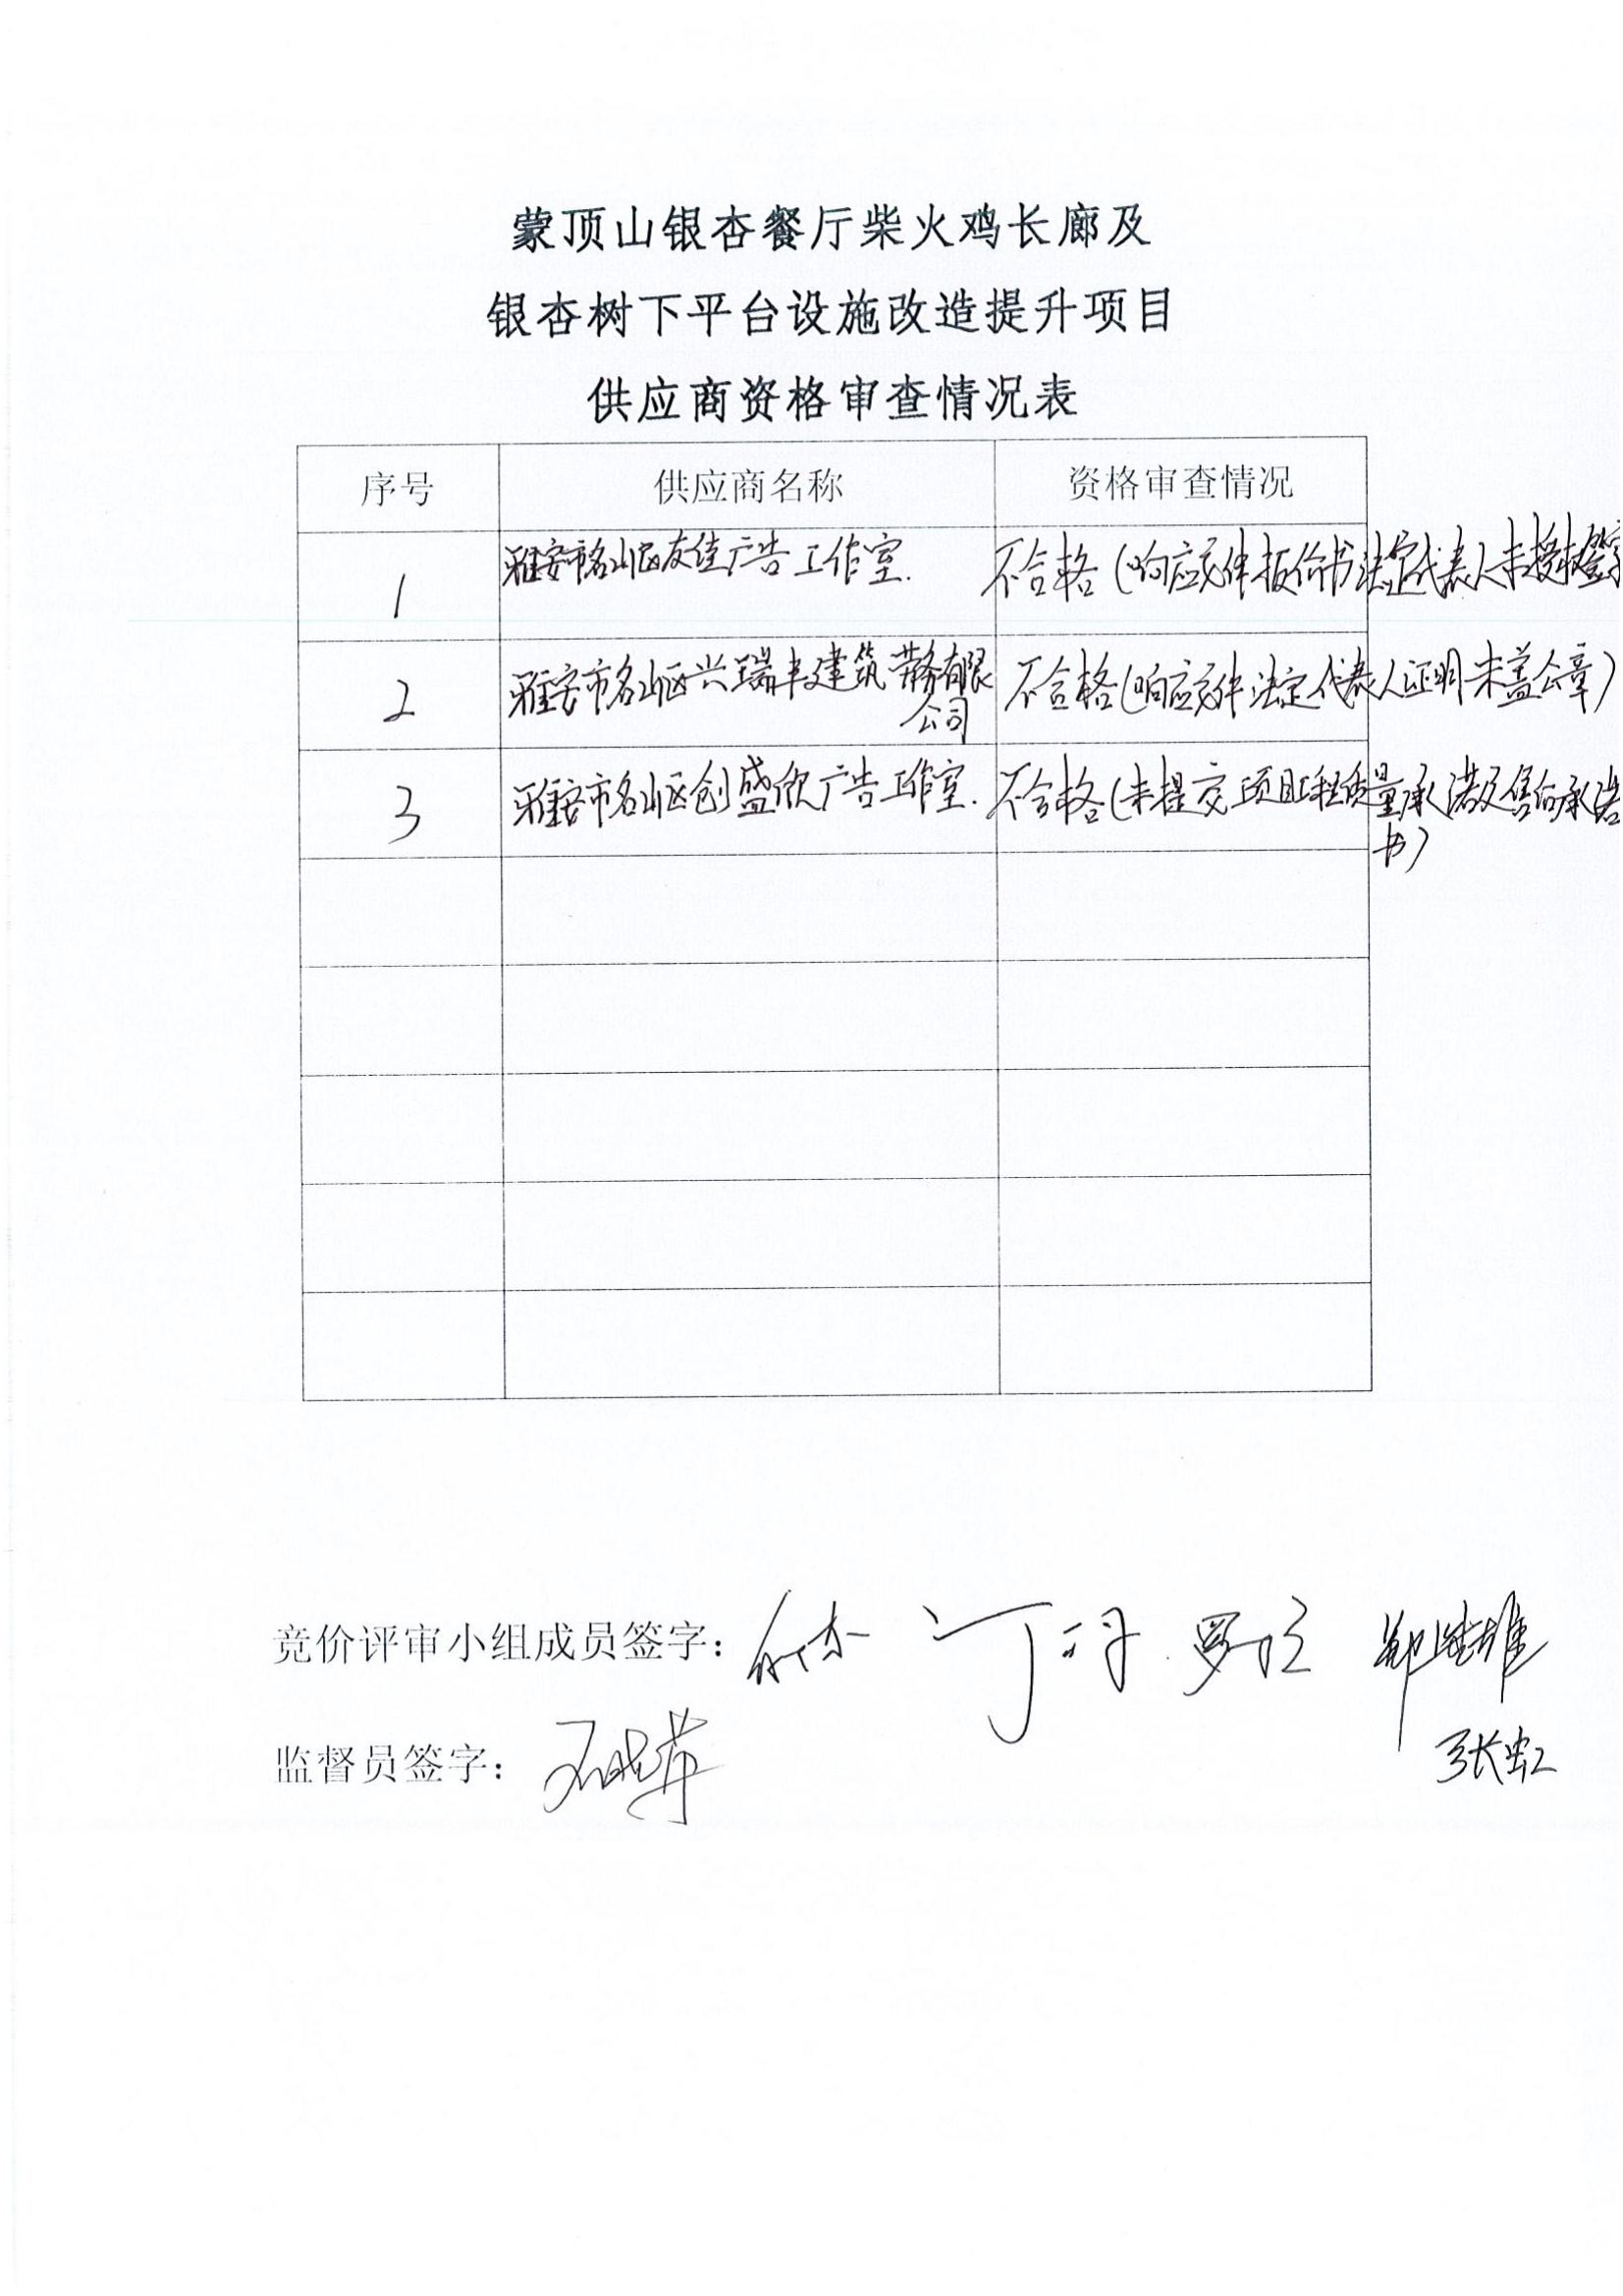 蒙顶山银杏餐厅柴火鸡长廊及
银杏树下平台设施改造提升项目
供应商资格审查情况表
序号 供应商名称 资格审查情况
1 雅安市名山区友佳广告工作室. 不合格(响应文件报价书法定代表人未授权签字
2 雅安市名山区兴瑞丰建筑劳务有限 不合格(响应文件法定代表人证明未盖公章)
公司
3 雅安市名山区创盛欣广告工作室. 不合格(未提交项目工程质量承诺及售后承诺
书)
竞价评审小组成员签字: 丁丹
张虹
监督员签字: